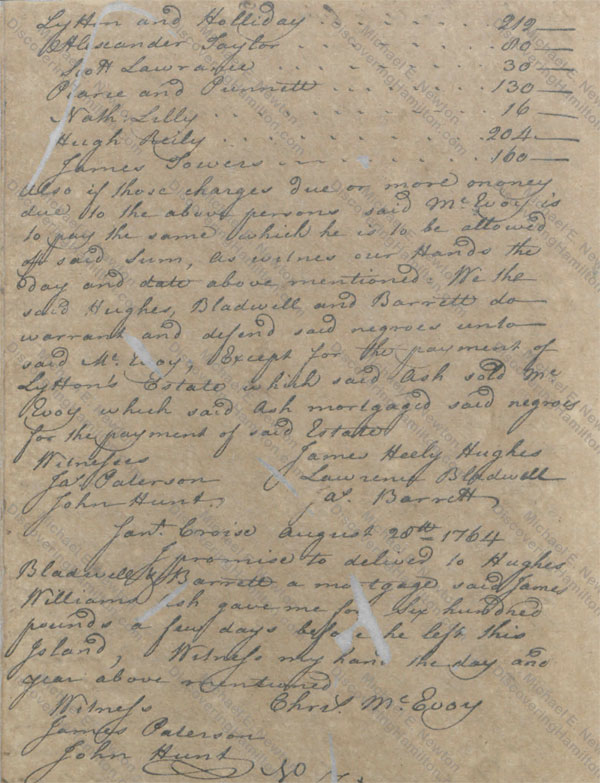 Lytton and Holliday . . . . . . . 212
Alexander Taylor . . . . . . . 80
Scott Lawrance . . . . . . . 30
Pearce and Punnett . . . . . . . 130
Nath: Lilly . . . . . . . 16
Hugh Reily . . . . . . . 204
James Towers . . . . . . . 160
Also if those charges due or more money
due to the above persons said Mc. Evoy is
to pay the same which he is to be allowed
of said Sum, As witnes our Hands the
day and date above mentioned. We the
said Hughes, Bladwell and Barrett do
warrant and defend said negroes unto
said Mc. Evoy, Except for the payment of
Lytton's Estate which said Ash sold Mc
Evoy which said Ash mortgaged said negroes
for the payment of said Estate
Witnesses James Heely Hughes
Jas. Paterson Lawrence Bladwell
John Hunt. Jas. Barrett
Sant. Croise August 28th 1764
I promise to deliver to Hughes
Bladwell & Barrett a mortgage said James
Williams Ash gave me for six hundred
pounds a few days before he left this
Island, Witness my hand the day and
year above mentioned
Witness Chris. Mc. Evoy
James Paterson
John Hunt
Michael E. Newton
DiscoveringHamilton.com